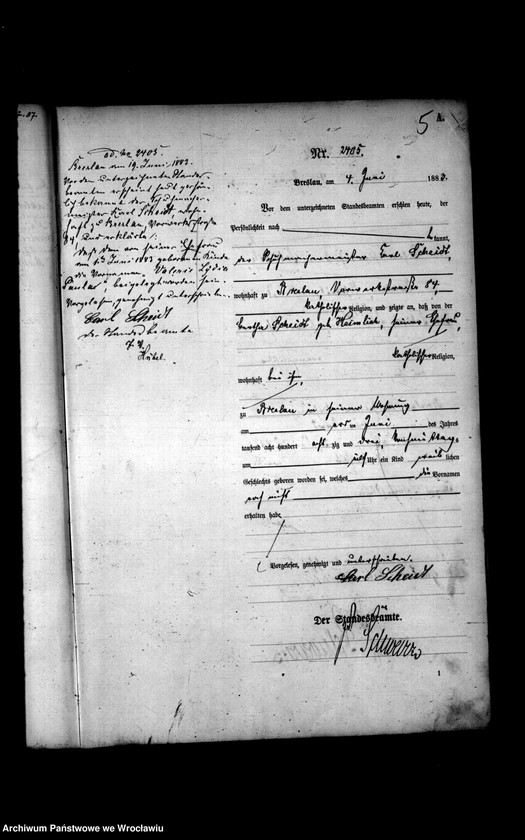 5 A.
ad. No 2405.
Breslau am 19. Juni 1883.
Vor dem unterzeichneten Standes-
beamten erschien heut, persön-
lich bekannt der Schuhmacher-
meister Karl Scheidt, wohn-
haft zu Breslau, Vorwerksstraße
84, und erklärte:
daß dem von seiner Ehefrau
am Juni 1883 geborenen Kinde
die Vornamen Valeria Lydia
Paula, beigelegt worden seien.
Vorgelesen, genehmigt, unterschrieben.
Carl Scheidt
der Standesbeamte
J. V.
Nr. 2405.
Breslau, am 4. Juni 1883.
Vor dem unterzeichneten Standesbeamten erschien heute, der
Persönlichkeit nach
bekannt,
der Schuhmachermeister Carl Scheidt,
wohnhaft zu Breslau Vorwerkstraße 84,
katholischer Religion, und zeigte an, daß von der
Bertha Scheidt geb. Heimlich, seiner Ehefrau,
katholischer Religion,
wohnhaft bei ihm,
zu Breslau in seiner Wohnung
am Juni des Jahres
tausend acht hundert acht zig und drei, Nachmittags
um Uhr ein Kind weiblichen
Geschlechts geboren worden sei, welches die Vornamen
noch nicht
erhalten habe.
Vorgelesen, genehmigt und unterschrieben.
Carl Scheidt
Der Standesbeamte.
Schwarz
1
Archiwum Państwowe we Wrocławiu